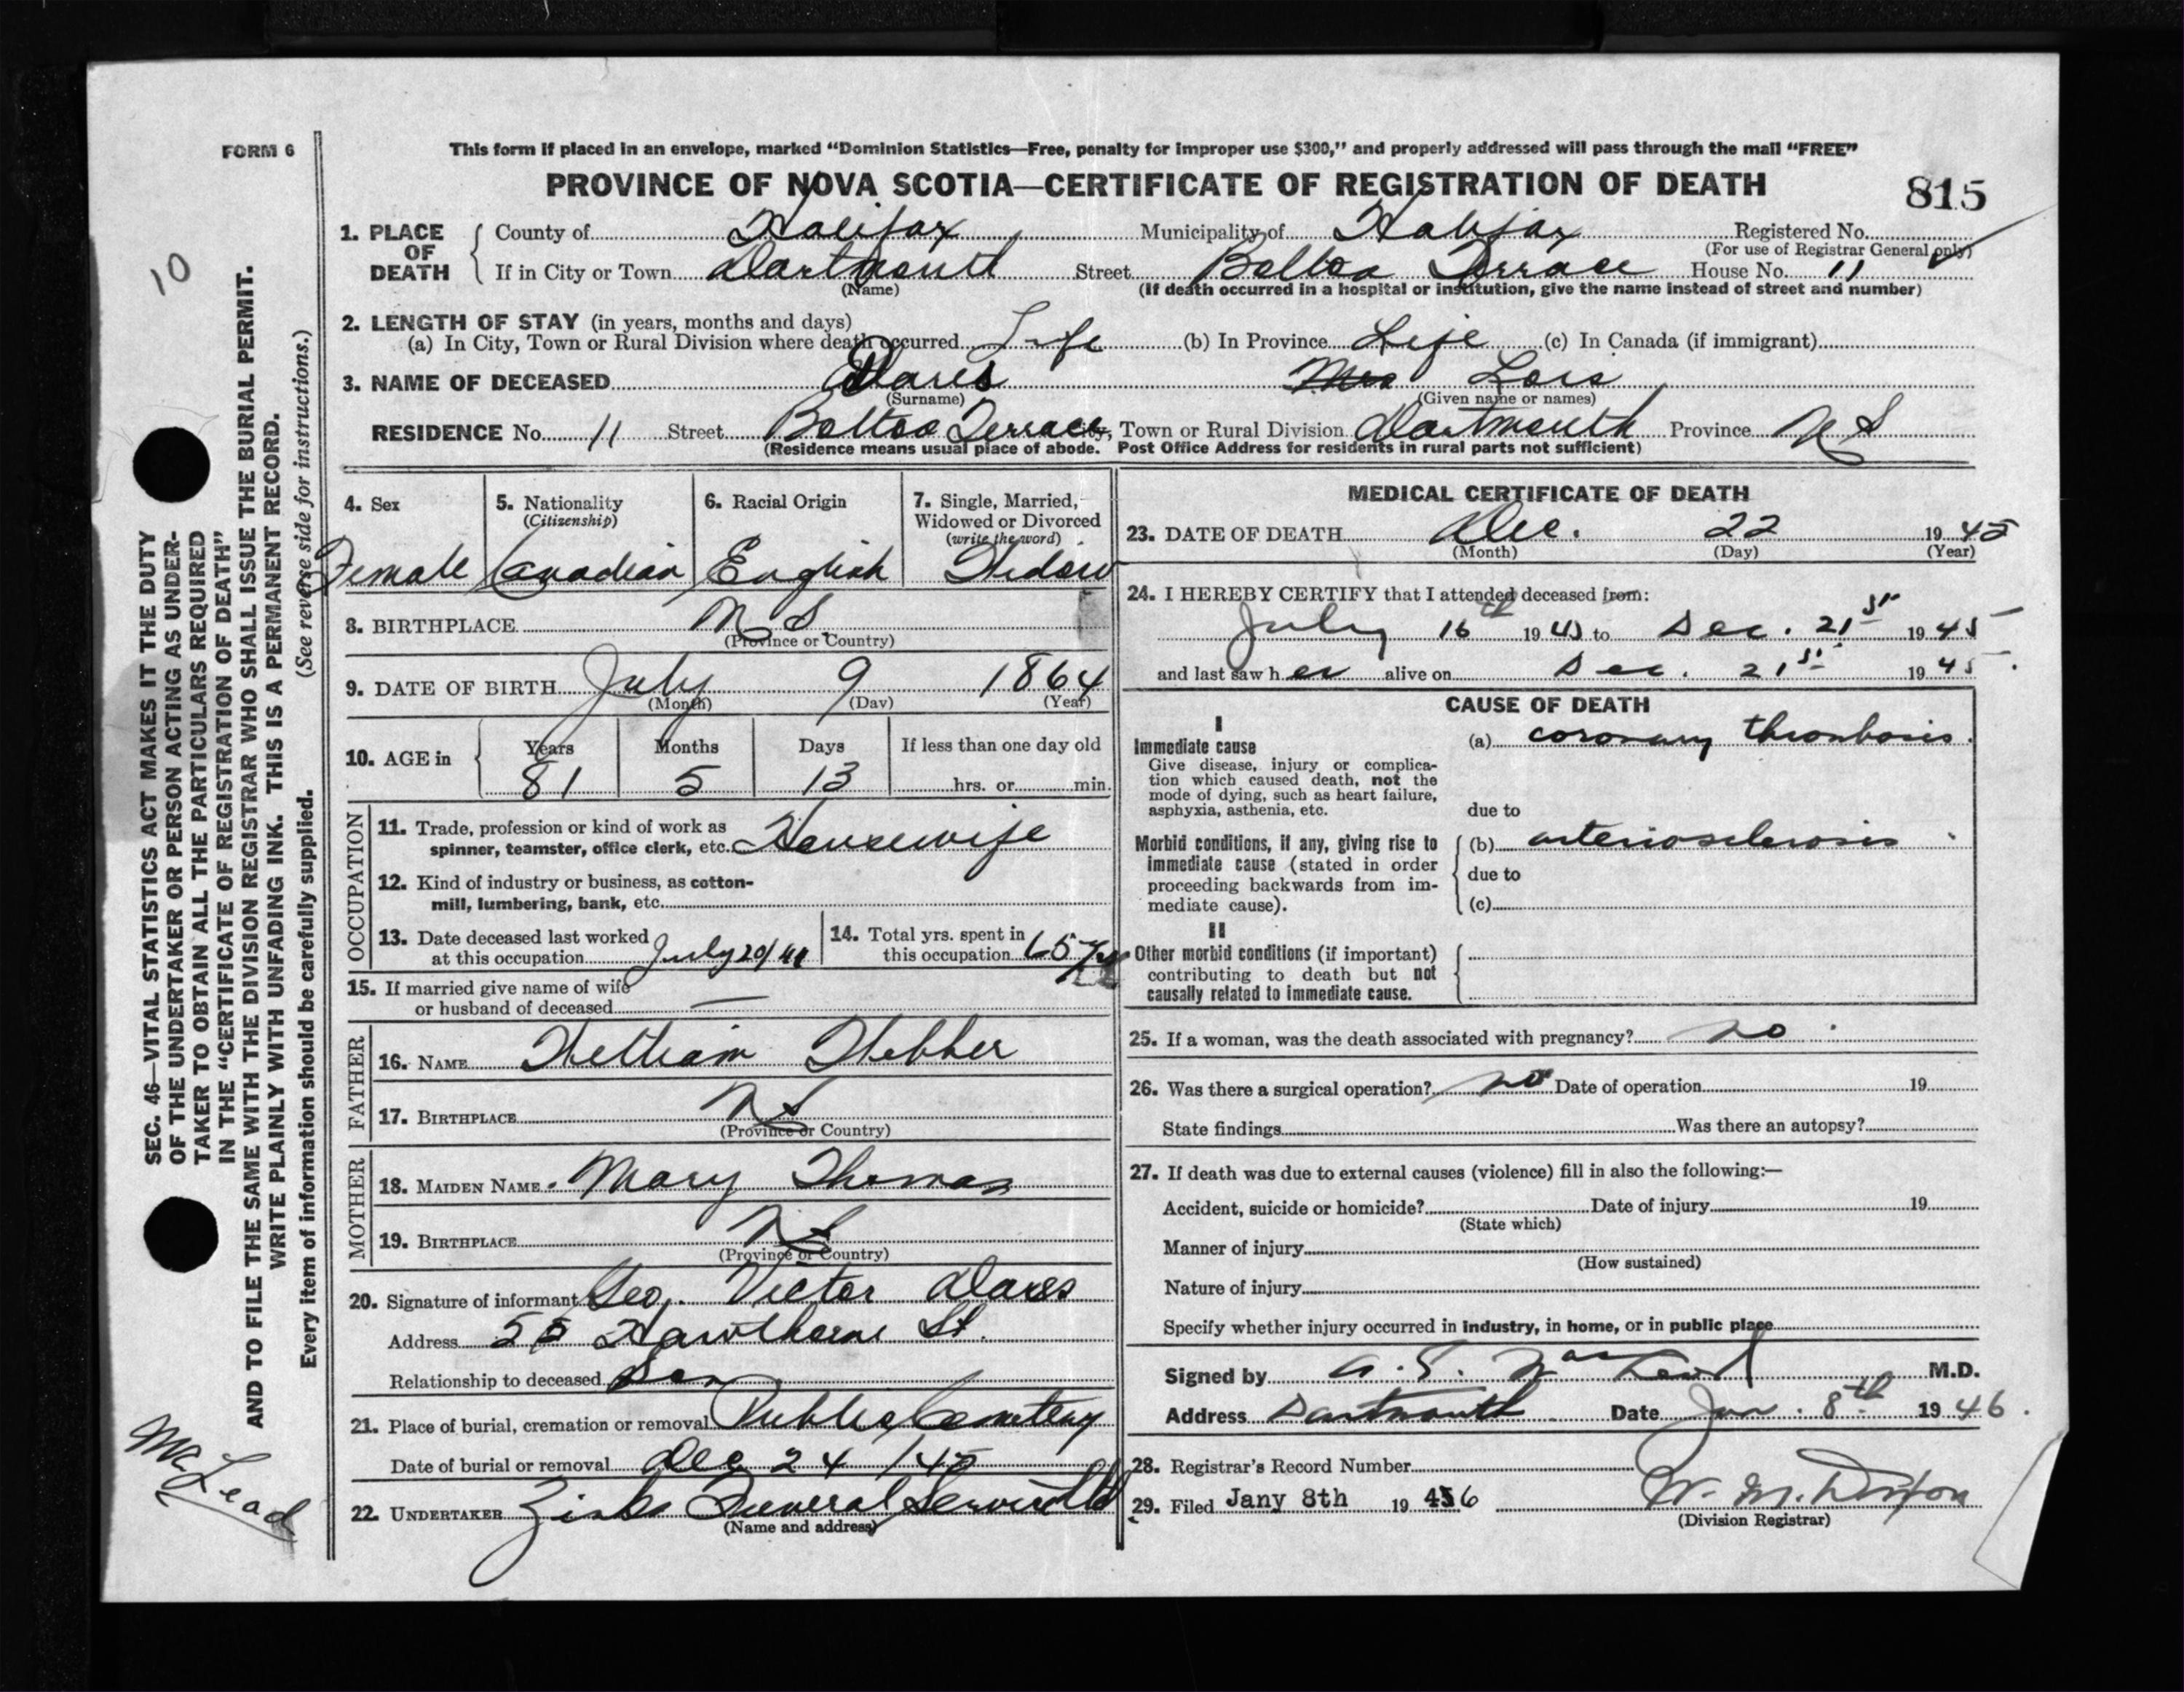 FORM 6
This form if placed in an envelope, marked “Dominion Statistics—Free, penalty for improper use $300,” and properly addressed will pass through the mail “FREE”
PROVINCE OF NOVA SCOTIA—CERTIFICATE OF REGISTRATION OF DEATH
815
10
1. PLACE OF DEATH
County of Halifax Municipality of Halifax Registered No.
(For use of Registrar General only)
If in City or Town Dartmouth Street Terrace House No. 11
(Name) (If death occurred in a hospital or institution, give the name instead of street and number)
2. LENGTH OF STAY (in years, months and days)
(a) In City, Town or Rural Division where death occurred Life (b) In Province Life (c) In Canada (if immigrant)
3. NAME OF DECEASED Dares Mrs Lois
(Surname) (Given name or names)
RESIDENCE No. 11 Street Terrace City, Town or Rural Division Dartmouth Province N S
(Residence means usual place of abode. Post Office Address for residents in rural parts not sufficient)
4. Sex Female
5. Nationality (Citizenship) Canadian
6. Racial Origin English
7. Single, Married, Widowed or Divorced (write the word) Widow
8. BIRTHPLACE N S
(Province or Country)
9. DATE OF BIRTH July 9 1864
(Month) (Day) (Year)
10. AGE in Years 81 Months 5 Days 13 If less than one day old hrs. or min.
OCCUPATION
11. Trade, profession or kind of work as
spinner, teamster, office clerk, etc. Housewife
12. Kind of industry or business, as cotton-
mill, lumbering, bank, etc.
13. Date deceased last worked
at this occupation July 20/41
14. Total yrs. spent in
this occupation 65 yrs
15. If married give name of wife
or husband of deceased —
FATHER
16. NAME William Webber
17. BIRTHPLACE N S
(Province or Country)
MOTHER
18. MAIDEN NAME Mary Thomas
19. BIRTHPLACE N S
(Province or Country)
20. Signature of informant Geo. Victor Dares
Address 55 Hawthorne St.
Relationship to deceased Son
21. Place of burial, cremation or removal Public Cemetery
Date of burial or removal Dec 24 /45
22. UNDERTAKER Zinks Funeral Service Ltd
(Name and address)
MEDICAL CERTIFICATE OF DEATH
23. DATE OF DEATH Dec. 22 1945
(Month) (Day) (Year)
24. I HEREBY CERTIFY that I attended deceased from:
July 16th 1945 to Dec. 21st 1945
and last saw her alive on Dec. 21st 1945.
CAUSE OF DEATH
I
Immediate cause
Give disease, injury or complica-
tion which caused death, not the
mode of dying, such as heart failure,
asphyxia, asthenia, etc.
(a) coronary thrombosis.
due to
Morbid conditions, if any, giving rise to
immediate cause (stated in order
proceeding backwards from im-
mediate cause).
(b) arteriosclerosis
due to
(c)
II
Other morbid conditions (if important)
contributing to death but not
causally related to immediate cause.
25. If a woman, was the death associated with pregnancy? no
26. Was there a surgical operation? no Date of operation 19
State findings Was there an autopsy?
27. If death was due to external causes (violence) fill in also the following:—
Accident, suicide or homicide? Date of injury 19
(State which)
Manner of injury
(How sustained)
Nature of injury
Specify whether injury occurred in industry, in home, or in public place
Signed by M.D.
Address Dartmouth Date Jan. 8th 1946.
28. Registrar's Record Number
29. Filed Jany 8th 1946 W. M. Dixon
(Division Registrar)
SEC. 46—VITAL STATISTICS ACT MAKES IT THE DUTY
OF THE UNDERTAKER OR PERSON ACTING AS UNDER-
TAKER TO OBTAIN ALL THE PARTICULARS REQUIRED
IN THE “CERTIFICATE OF REGISTRATION OF DEATH”
AND TO FILE THE SAME WITH THE DIVISION REGISTRAR WHO SHALL ISSUE THE BURIAL PERMIT.
WRITE PLAINLY WITH UNFADING INK. THIS IS A PERMANENT RECORD.
Every item of information should be carefully supplied. (See reverse side for instructions.)
McLead